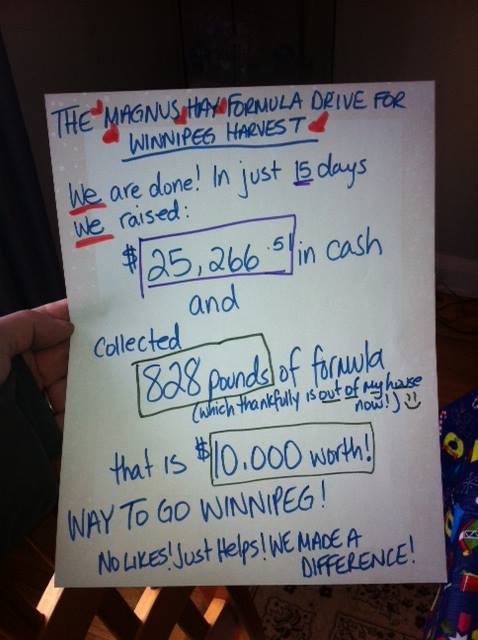 THE MAGNUS HAY FORMULA DRIVE FOR
WINNIPEG HARVEST
We are done! In just 15 days
We raised:
$25,266.51 in cash
and
collected
828 pounds of formula
(which thankfully is out of my house
now!) :)
that is $10,000 worth!
WAY TO GO WINNIPEG!
NO LIKES! Just Helps! WE MADE A
DIFFERENCE!